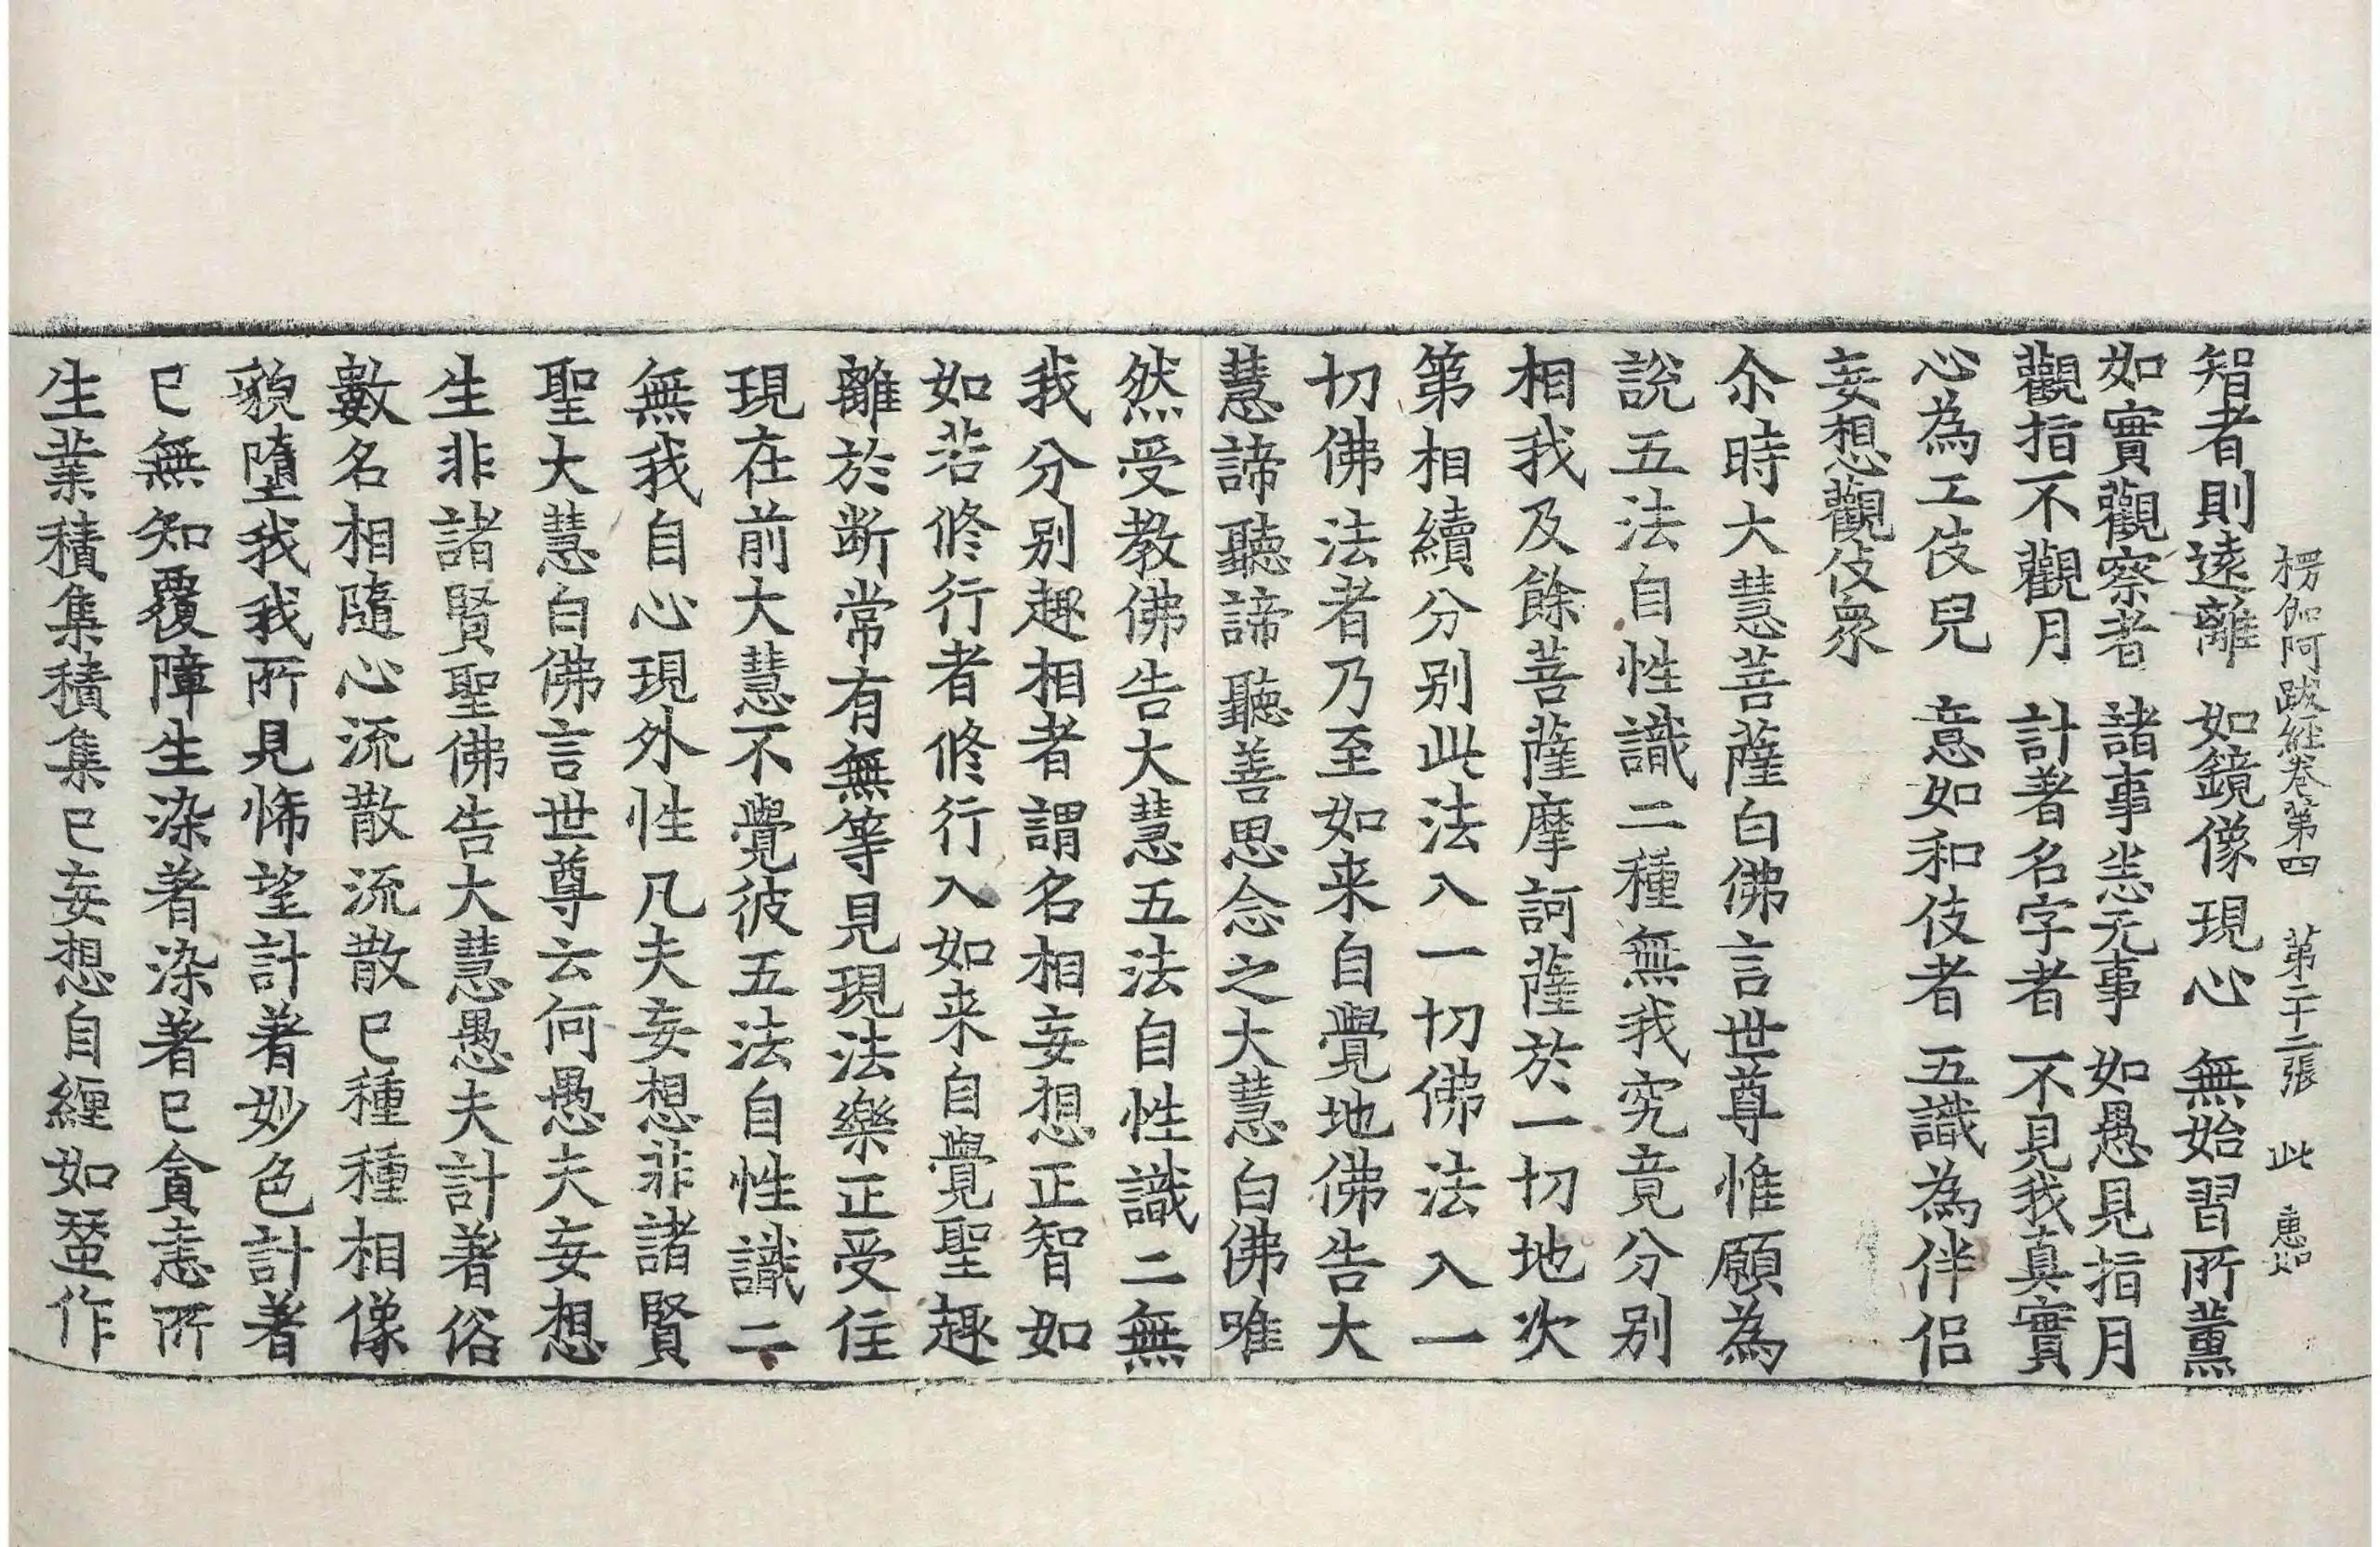 楞伽阿跋経卷第四　第二十二張　此　惠如
智者則遠離　如鏡像現心　無始習所薰
如實觀察者　諸事悉无事　如愚見指月
觀指不觀月　計著名字者　不見我真實
心為工伎兒　意如和伎者　五識為伴侣
妄想觀伎衆
尒時大慧菩薩白佛言世尊惟願為
說五法自性識二種無我究竟分别
相我及餘菩薩摩訶薩於一切地次
第相續分别此法入一切佛法入一
切佛法者乃至如来自覺地佛告大
慧諦聽諦聽善思念之大慧白佛唯
然受教佛告大慧五法自性識二無
我分别趣相者謂名相妄想正智如
如若修行者修行入如来自覺聖趣
離於斷常有無等見現法樂正受住
現在前大慧不覺彼五法自性識二
無我自心現外性凡夫妄想非諸賢
聖大慧白佛言世尊云何愚夫妄想
生非諸賢聖佛告大慧愚夫計著俗
數名相隨心流散流散已種種相像
貌墮我我所見悕望計著妙色計著
已無知覆障生染著染著已貪恚所
生業積集積集已妄想自纒如蠶作